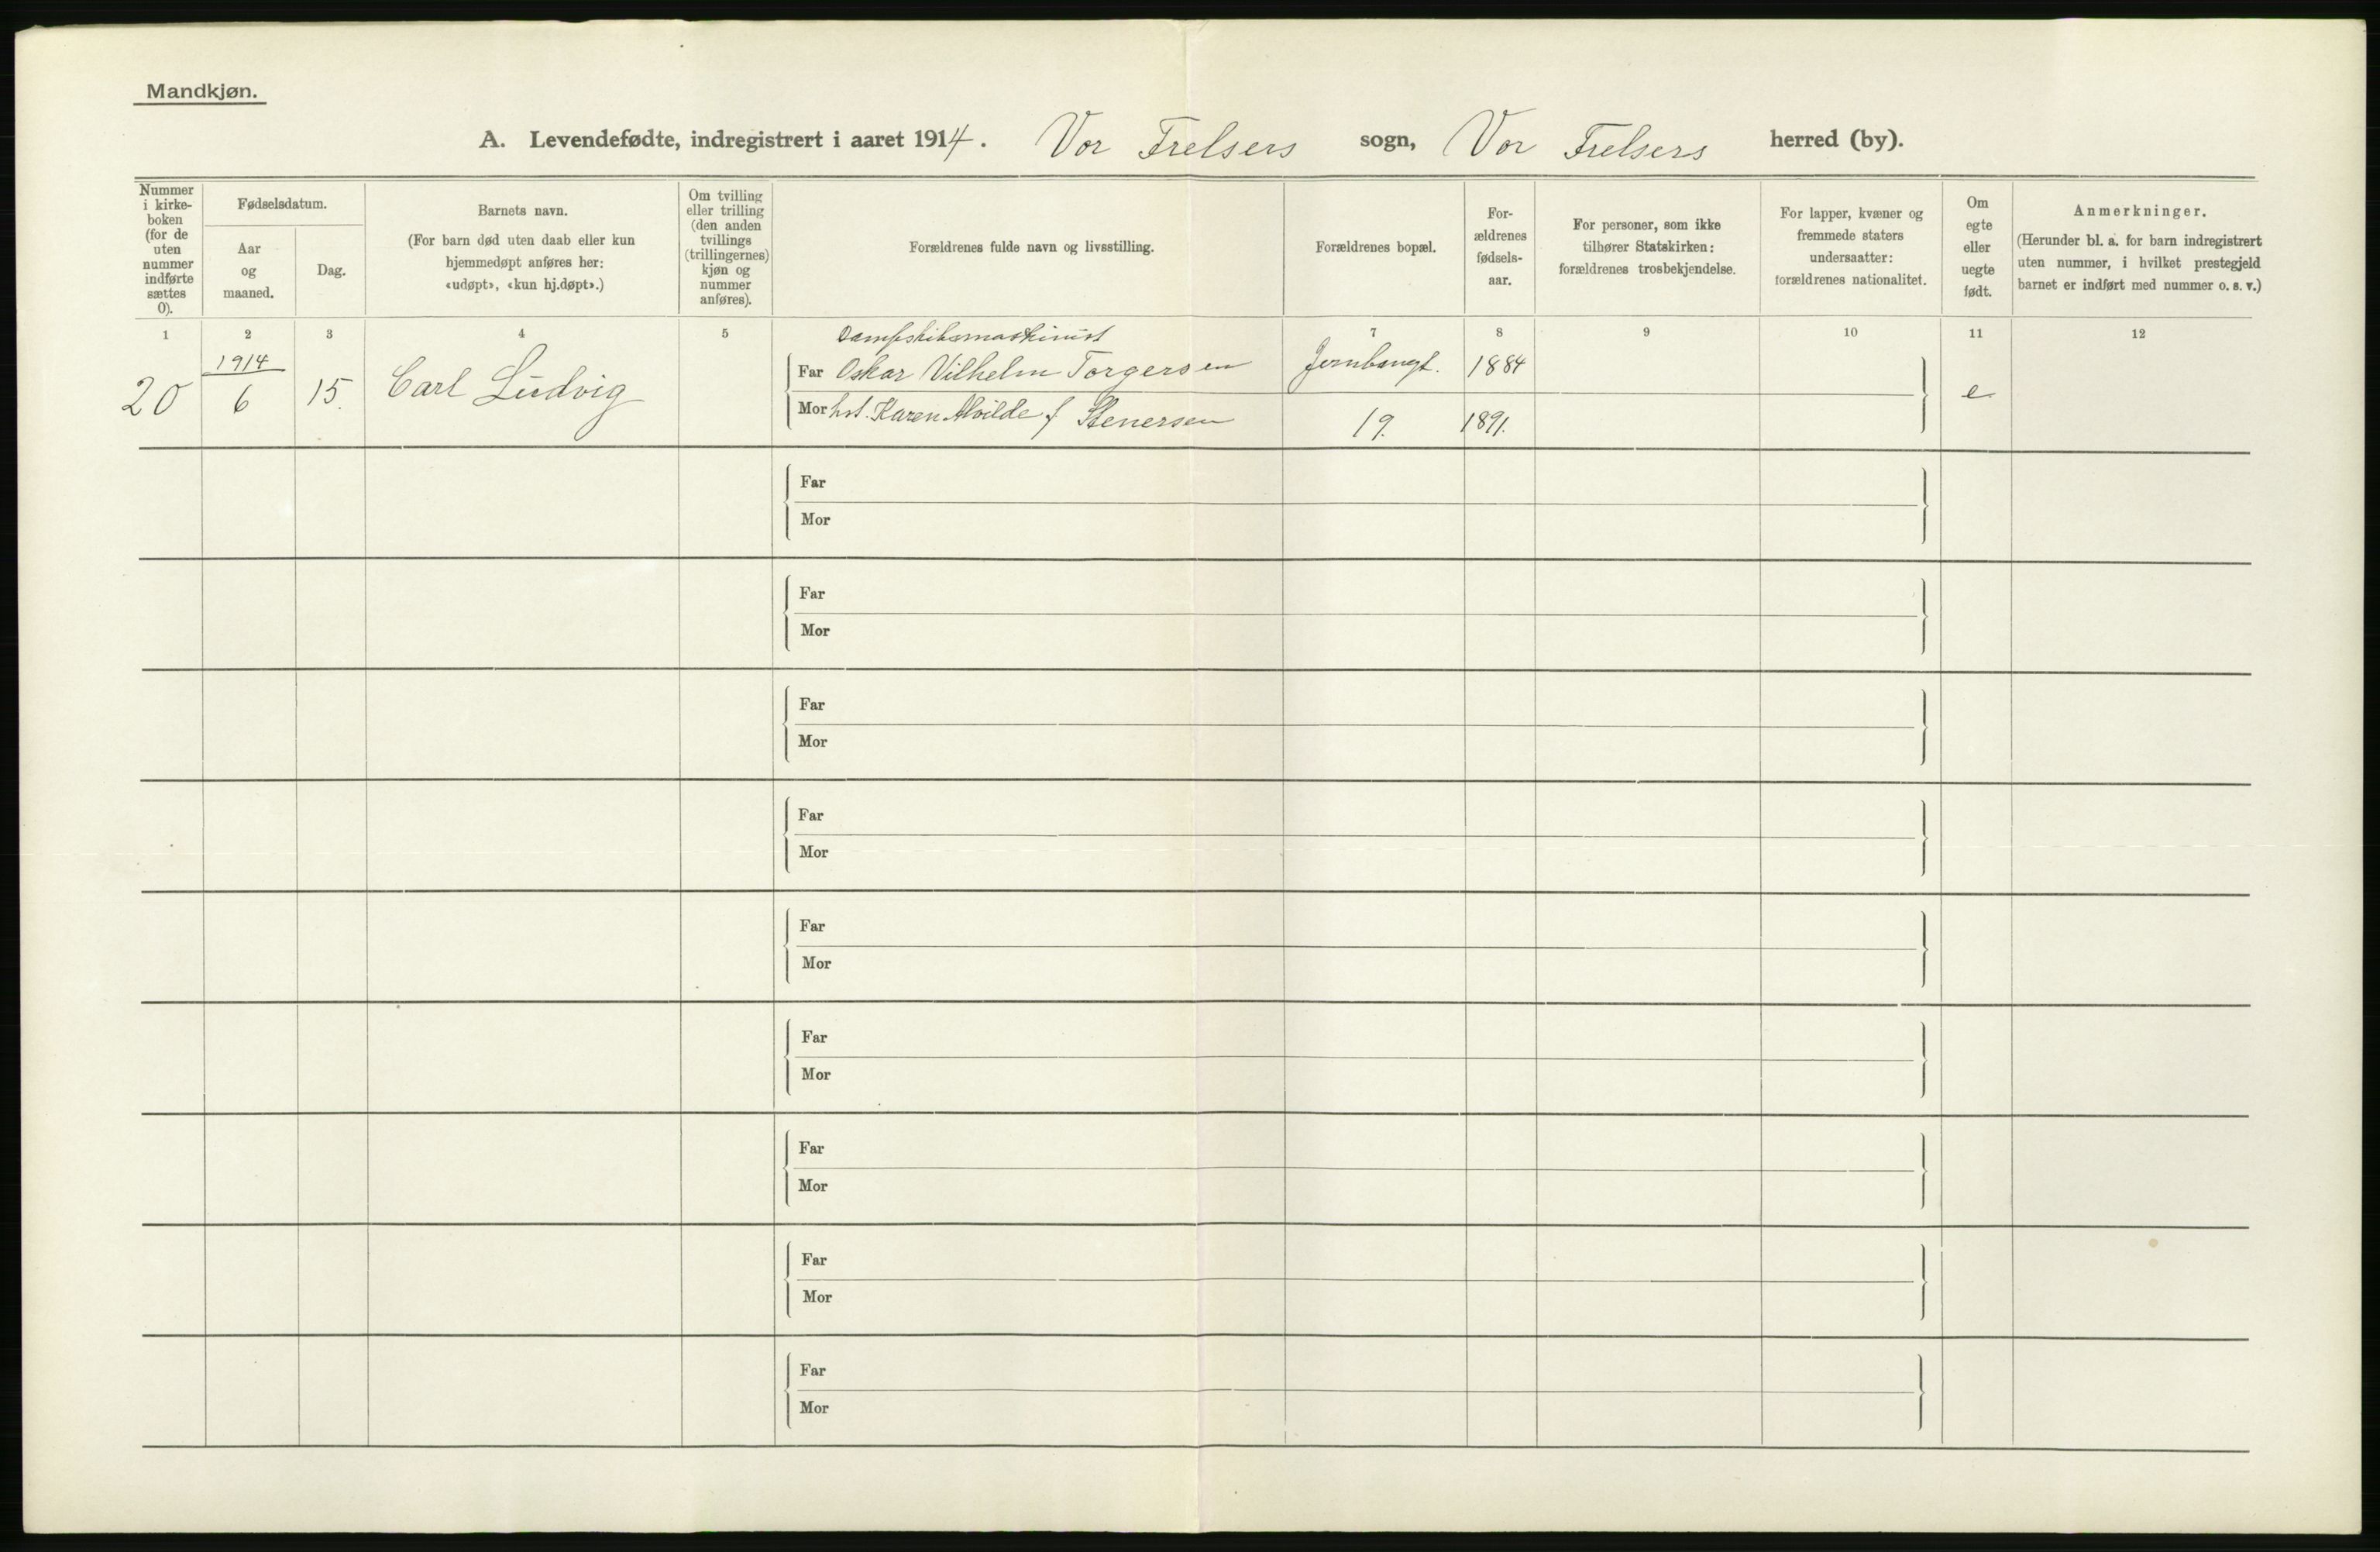 Mandkjøn.
A. Levendefødte, indregistrert i aaret 1914. Vor Frelsers sogn, Vor Frelsers herred (by).
Nummer i kirke-boken (for de uten nummer indførte sættes 0).
Fødselsdatum.
Aar og maaned.
Dag.
Barnets navn.
(For barn død uten daab eller kun hjemmedøpt anføres her: «udøpt», «kun hj.døpt».)
Om tvilling eller trilling (den anden tvillings (trillingernes) kjøn og nummer anføres).
Forældrenes fulde navn og livsstilling.
Forældrenes bopæl.
For-ældrenes fødsels-aar.
For personer, som ikke tilhører Statskirken: forældrenes trosbekjendelse.
For lapper, kvæner og fremmede staters undersaatter: forældrenes nationalitet.
Om egte eller uegte født.
Anmerkninger.
(Herunder bl. a. for barn indregistrert uten nummer, i hvilket prestegjeld barnet er indført med nummer o. s. v.)
1 2 3 4 5 7 8 9 10 11 12
Dampskibsmaskinist
20 1914 6 15. Carl Ludvig Far Oskar Vilhelm Torgersen Jernbangt. 1884 e
Mor hst. Karen Alvilde f Stenersen 19. 1891.
Far
Mor
Far
Mor
Far
Mor
Far
Mor
Far
Mor
Far
Mor
Far
Mor
Far
Mor
Far
Mor